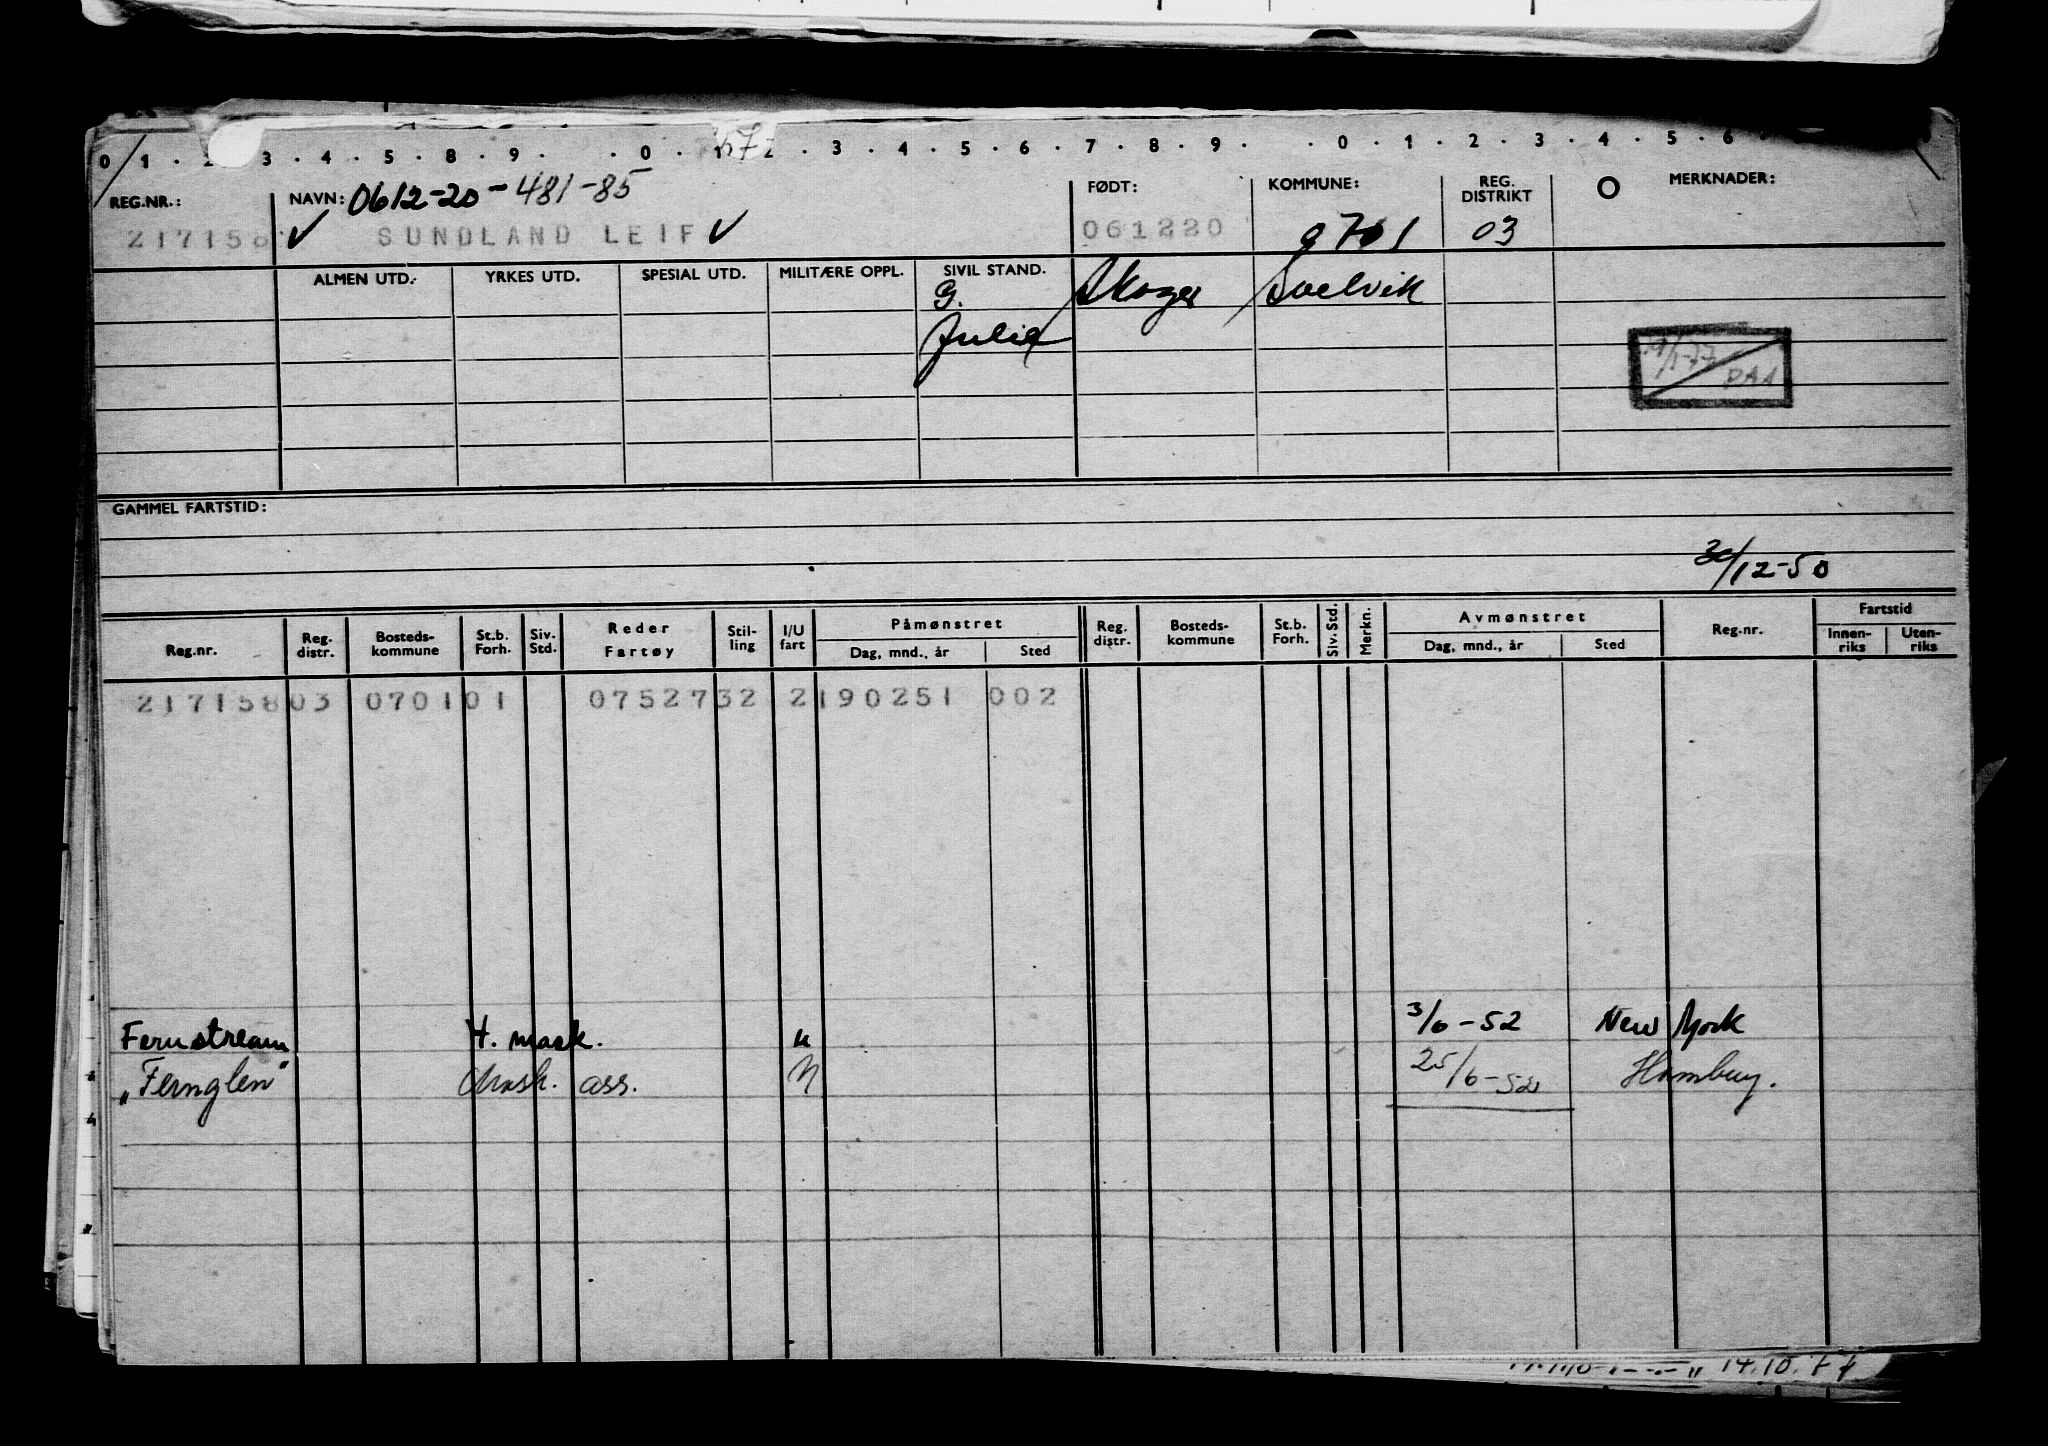 0 1 . 2 3 . 4 . 5 . 8 . 9 . . 0 . 1 2 . 3 . 4 . 5 . 6 . 7 . 8 . 9 . . 0 . 1 . 2 . 3 . 4 . 5 . 6
REG.NR.: NAVN: 0612-20-481-85 FØDT: KOMMUNE: REG. DISTRIKT MERKNADER:
217158 ✓ SUNDLAND LEIF ✓ 061220 0701 03
ALMEN UTD. YRKES UTD. SPESIAL UTD. MILITÆRE OPPL. SIVIL STAND. Skoger Svelvik
G.
Julie
GAMMEL FARTSTID:
30/12-50
Reg.nr. Reg. distr. Bosteds- kommune St.b. Forh. Siv. Std. Reder Fartøy Stil- ling I/U fart Påmønstret Dag, mnd., år Sted Reg. distr. Bosteds- kommune St.b. Forh. Siv. Std. Merkn. Avmønstret Dag, mnd., år Sted Reg.nr. Fartstid Innen- riks Uten- riks
217158 03 0701 01 07527 32 2 190251 002
Fernstream H. mask. u 3/6-52 New York
"Fernglen" Mask. ass. U 25/6-52 Hamburg.
14.10.74